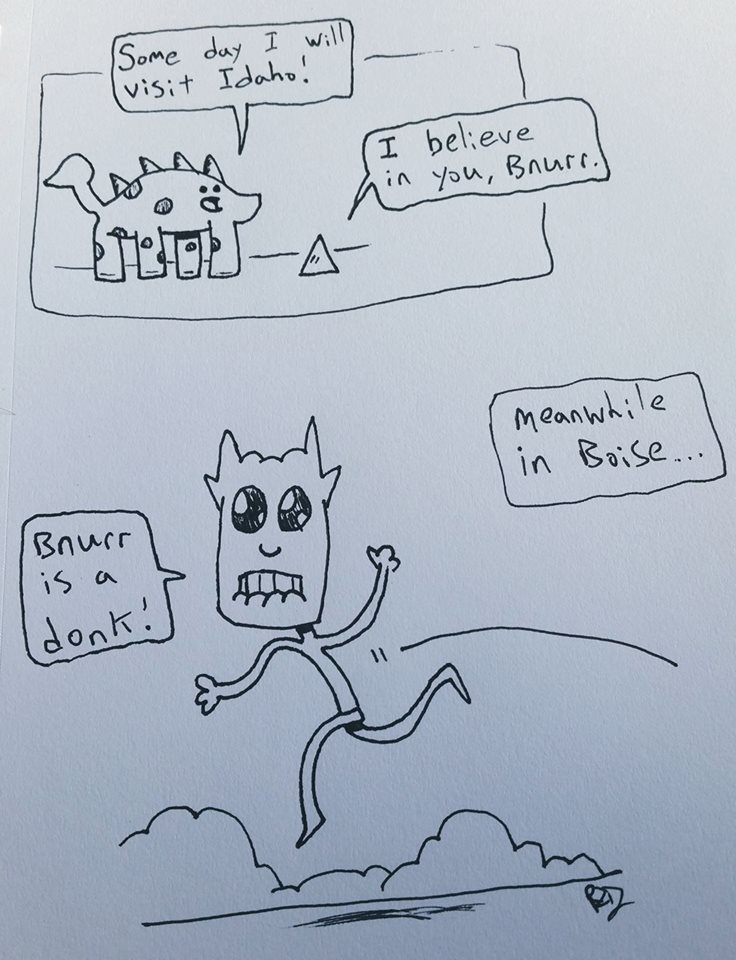 Some day I will
visit Idaho!
I believe
in you, Bnurr.
Meanwhile
in Boise...
Bnurr
is a
donk!